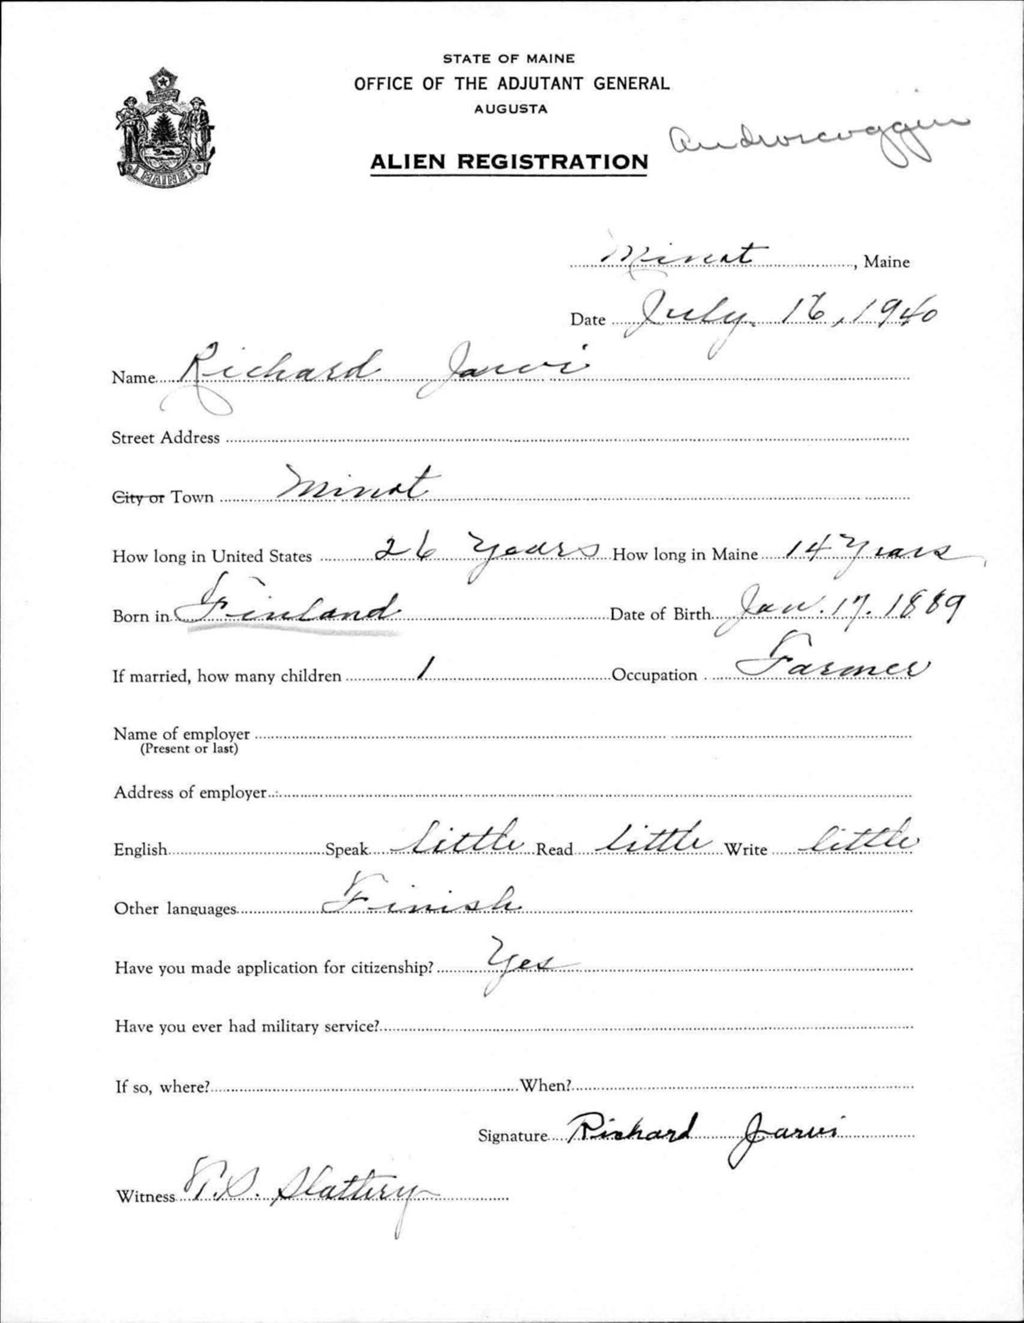 STATE OF MAINE
OFFICE OF THE ADJUTANT GENERAL
AUGUSTA
ALIEN REGISTRATION
Androscoggin
MAINE
Minot, Maine
Date July 16, 1940
Name Richard Jarvi
Street Address
City or Town Minot
How long in United States 26 Years How long in Maine 14 Years
Born in Finland Date of Birth Jan. 17. 1889
If married, how many children 1 Occupation Farmer
Name of employer
(Present or last)
Address of employer
English Speak Little Read little Write little
Other languages Finish
Have you made application for citizenship? Yes
Have you ever had military service?
If so, where? When?
Signature Richard Jarvi
Witness Slattery